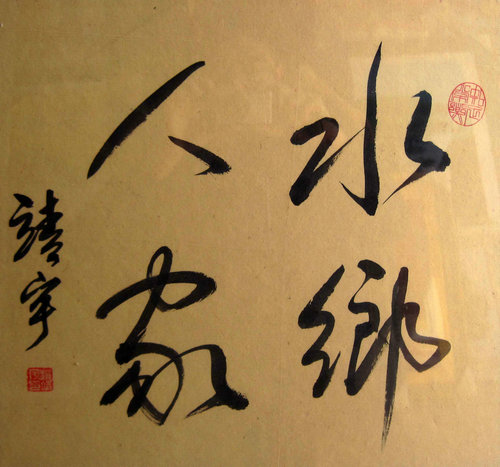 水鄉
人家
靖宇